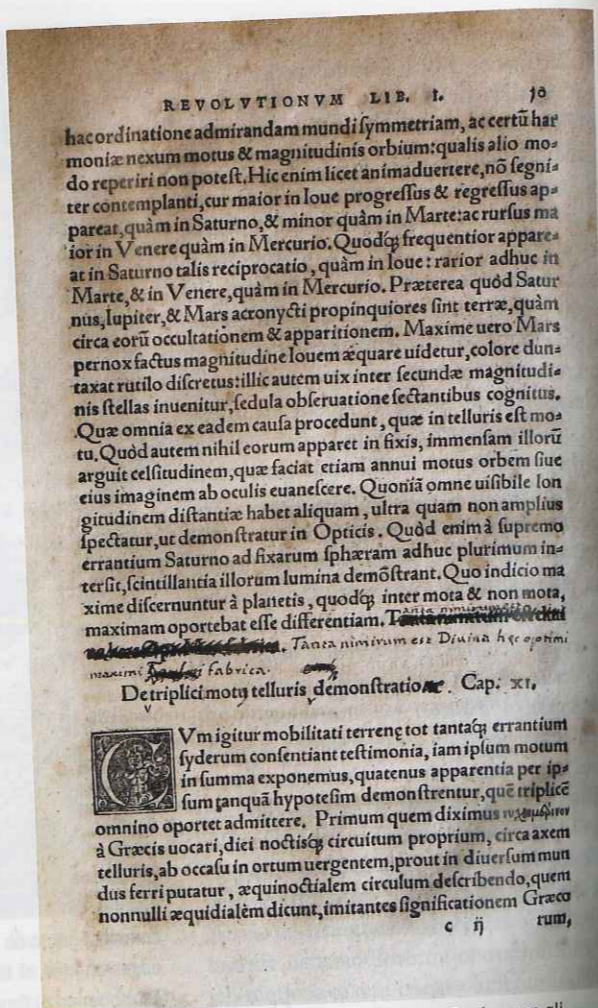 REVOLVTIONVM LIB. I. 10
hac ordinatione admirandam mundi ſymmetriam, ac certũ har
moniæ nexum motus & magnitudinis orbium: qualis alio mo⸗
do reperiri non poteſt. Hic enim licet animaduertere, nõ ſegni⸗
ter contemplanti, cur maior in Ioue progreſſus & regreſſus ap⸗
pareat, quàm in Saturno, & minor quàm in Marte: ac rurſus ma
ior in Venere quàm in Mercurio. Quodq́ꝫ frequentior appare⸗
at in Saturno talis reciprocatio, quàm in Ioue: rarior adhuc in
Marte, & in Venere, quàm in Mercurio. Præterea quòd Satur
nus, Iupiter, & Mars acronycti propinquiores ſint terræ, quàm
circa eorũ occultationem & apparitionem. Maxime uero Mars
pernox factus magnitudine Iouem æquare uidetur, colore dun⸗
taxat rutilo diſcretus: illic autem uix inter ſecundæ magnitudi⸗
nis ſtellas inuenitur, ſedula obſeruatione ſectantibus cognitus.
Quæ omnia ex eadem cauſa procedunt, quæ in telluris eſt mo⸗
tu. Quòd autem nihil eorum apparet in fixis, immenſam illorũ
arguit celſitudinem, quæ faciat etiam annui motus orbem ſiue
eius imaginem ab oculis euaneſcere. Quoniã omne uiſibile lon
gitudinem diſtantiæ habet aliquam, ultra quam non amplius
ſpectatur, ut demonſtratur in Opticis. Quòd enim à ſupremo
errantium Saturno ad fixarum ſphæram adhuc plurimum in⸗
terſit, ſcintillantia illorum lumina demõſtrant. Quo indicio ma
xime diſcernuntur à planetis, quodq́ꝫ inter mota & non mota,
maximam oportebat eſſe differentiam.
Tanta nimirum est Divina hęc optimi
maximi fabrica.
De triplici motu telluris demonſtratio. Cap. XI.
CVm igitur mobilitati terrenę tot tantaq́ꝫ errantium
ſyderum conſentiant teſtimonia, iam ipſum motum
in ſumma exponemus, quatenus apparentia per ip⸗
ſum tanquã hypoteſim demonſtrentur, quẽ triplicẽ
omnino oportet admittere. Primum quem diximus
à Græcis uocari, diei noctisq́ꝫ circuitum proprium, circa axem
telluris, ab occaſu in ortum uergentem, prout in diuerſum mun
dus ferri putatur, æquinoctialem circulum deſcribendo, quem
nonnulli æquidialem dicunt, imitantes ſignificationem Græco
c ij rum,